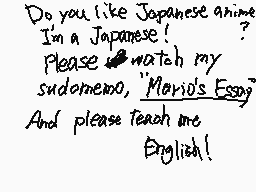 Do you like Japanese anime?
I'm a Japanese!
Please watch my
sudomemo, "Mario's Essay"
And please teach me
English!